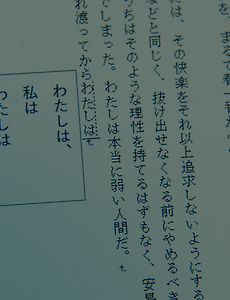 を、まるで春
には、その快楽をそれ以上追求しないようにする
などと同じく、抜け出せなくなる前にやめるべき
うちはそのような理性を持てるはずもなく、安易
でしまった。わたしは本当に弱い人間だ。
れ渡ってからわたしは
わたしは、
私は
わたしは